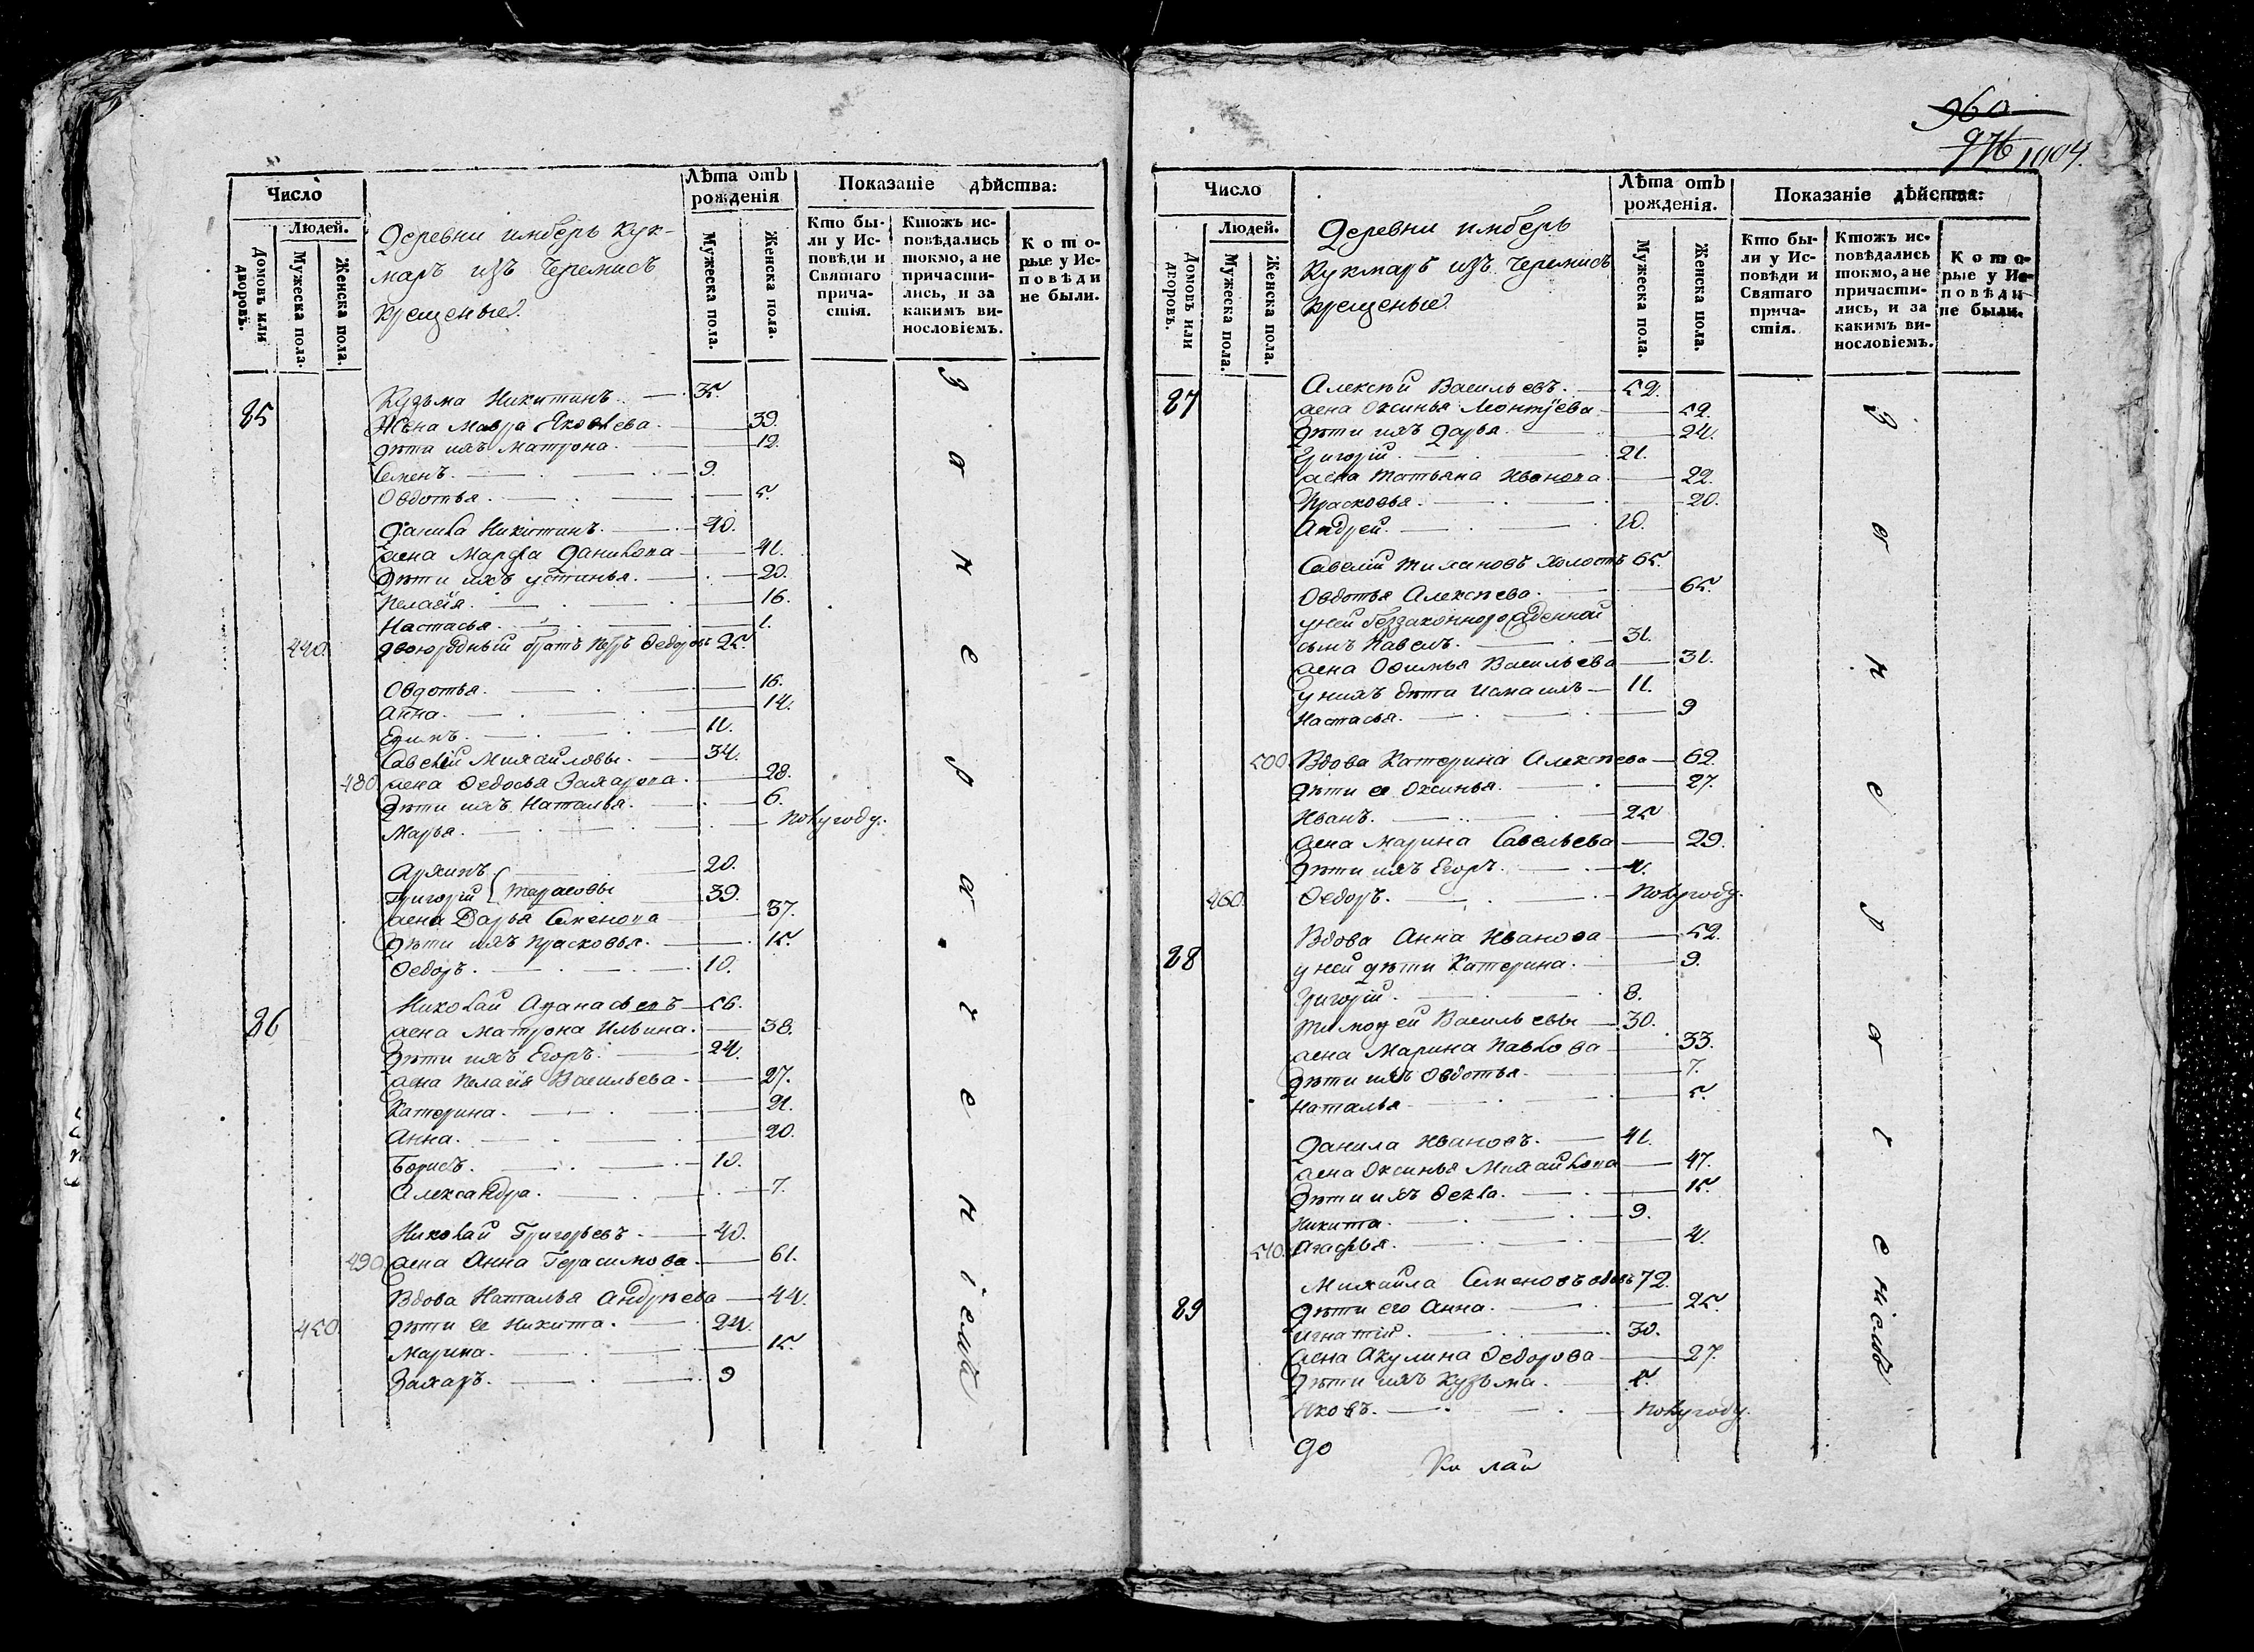 960
976 1004.
Число
Людей.
Домовъ или дворовъ.
Мужеска пола.
Женска пола.
Деревни имберь Кук-
маръ изъ Черемисъ
Крещеные
Лѣта отъ рожденія
Мужеска пола.
Женска пола.
Показаніе дѣйства:
Кто бы-
ли у Ис-
повѣди и
Святаго
прича-
стія.
Ктожъ ис-
повѣдались
токмо, а не
причасти-
лись, и за
какимъ ви-
нословіемъ.
К о т о-
рые у Ис-
п о в ѣ д и
не были.
Кузьма Никитинъ. 35.
85 Жена Мавра Яковлева. 39.
дѣти ихъ Матрона. 12.
Семенъ. 9.
Овдотья. 5.
Данила Никитинъ. 40.
жена Марфа Данилова 41.
Дѣти ихъ Устинья. 20.
Пелагія. 16.
Настасья. 1.
440. двоюродный братъ Петръ Федоровъ 25.
Овдотья. 16.
Анна. 14.
Ефимъ. 11.
Савелій Михайловы. 34.
480. жена Федосья Захарова. 28.
Дѣти ихъ Наталья. 6.
Марья. полугоду.
Архипъ 20.
Григорій Тарасовы 39.
жена Дарья Семенова 37.
Дѣти ихъ Прасковья. 15.
Федоръ. 10.
Николай Афанасьевъ 56.
86 жена Матрона Ильина. 38.
Дѣти ихъ Егоръ. 24.
жена Пелагія Васильева. 27.
Катерина. 21.
Анна. 20.
Борисъ. 10.
Александра. 7.
Николай Григорьевъ 40.
490 жена Анна Герасимова 61.
Вдова Наталья Андреева 44.
450. дѣти ее Никита. 24.
Марина. 15.
Захаръ. 9
З а н е р а ч е н і е м ъ
Число
Людей.
Домовъ или дворовъ.
Мужеска пола.
Женска пола.
Деревни имберь
Кукмаръ изъ Черемисъ
Крещеные
Лѣта отъ рожденія.
Мужеска пола.
Женска пола.
Показаніе дѣйства:
Кто бы-
ли у Ис-
повѣди и
Святаго
прича-
стія.
Ктожъ ис-
повѣдались
токмо, а не
причасти-
лись, и за
какимъ ви-
нословіемъ.
К о т о-
рые у Ис-
п о в ѣ д и
не были.
87 Алексѣй Васильевъ. 52.
жена Оксинья Монтуева 52.
Дѣти ихъ Дарья. 24.
Григорій. 21.
жена Татьяна Иванова 22.
Прасковья. 20.
Андрей. 10.
Савелій Тихановъ холостъ 65.
Овдотья Алексѣева. 65.
у ней беззаконнорожденной
сынъ Павелъ. 31.
жена Офимья Васильева 31.
у нихъ дѣти Исмаилъ 11.
Настасья. 9
500. Вдова Катерина Алексѣева 62.
дѣти ее Оксинья. 27.
Иванъ. 25
жена Марина Савельева 29.
Дѣти ихъ Егоръ. 4.
460. Федоръ. полугоду.
Вдова Анна Иванова 52.
88 у ней дѣти Катерина. 9.
Григорій. 8.
Тимофей Васильевы 30.
жена Марина Павлова 33.
дѣти ихъ Овдотья. 7.
Наталья 5.
Данила Ивановъ. 41.
жена Оксинья Михайлова 47.
Дѣти ихъ Фекла. 15.
Никита. 9.
510. Агафья. 4.
Михайла Семеновъ вдовъ 72.
89 дѣти его Анна. 25.
Игнатій. 30.
жена Акулина Федорова 27.
Дѣти ихъ Кузьма. 5.
Яковъ. полугоду.
З а н е р а ч е н і е м ъ
90
Ко лай